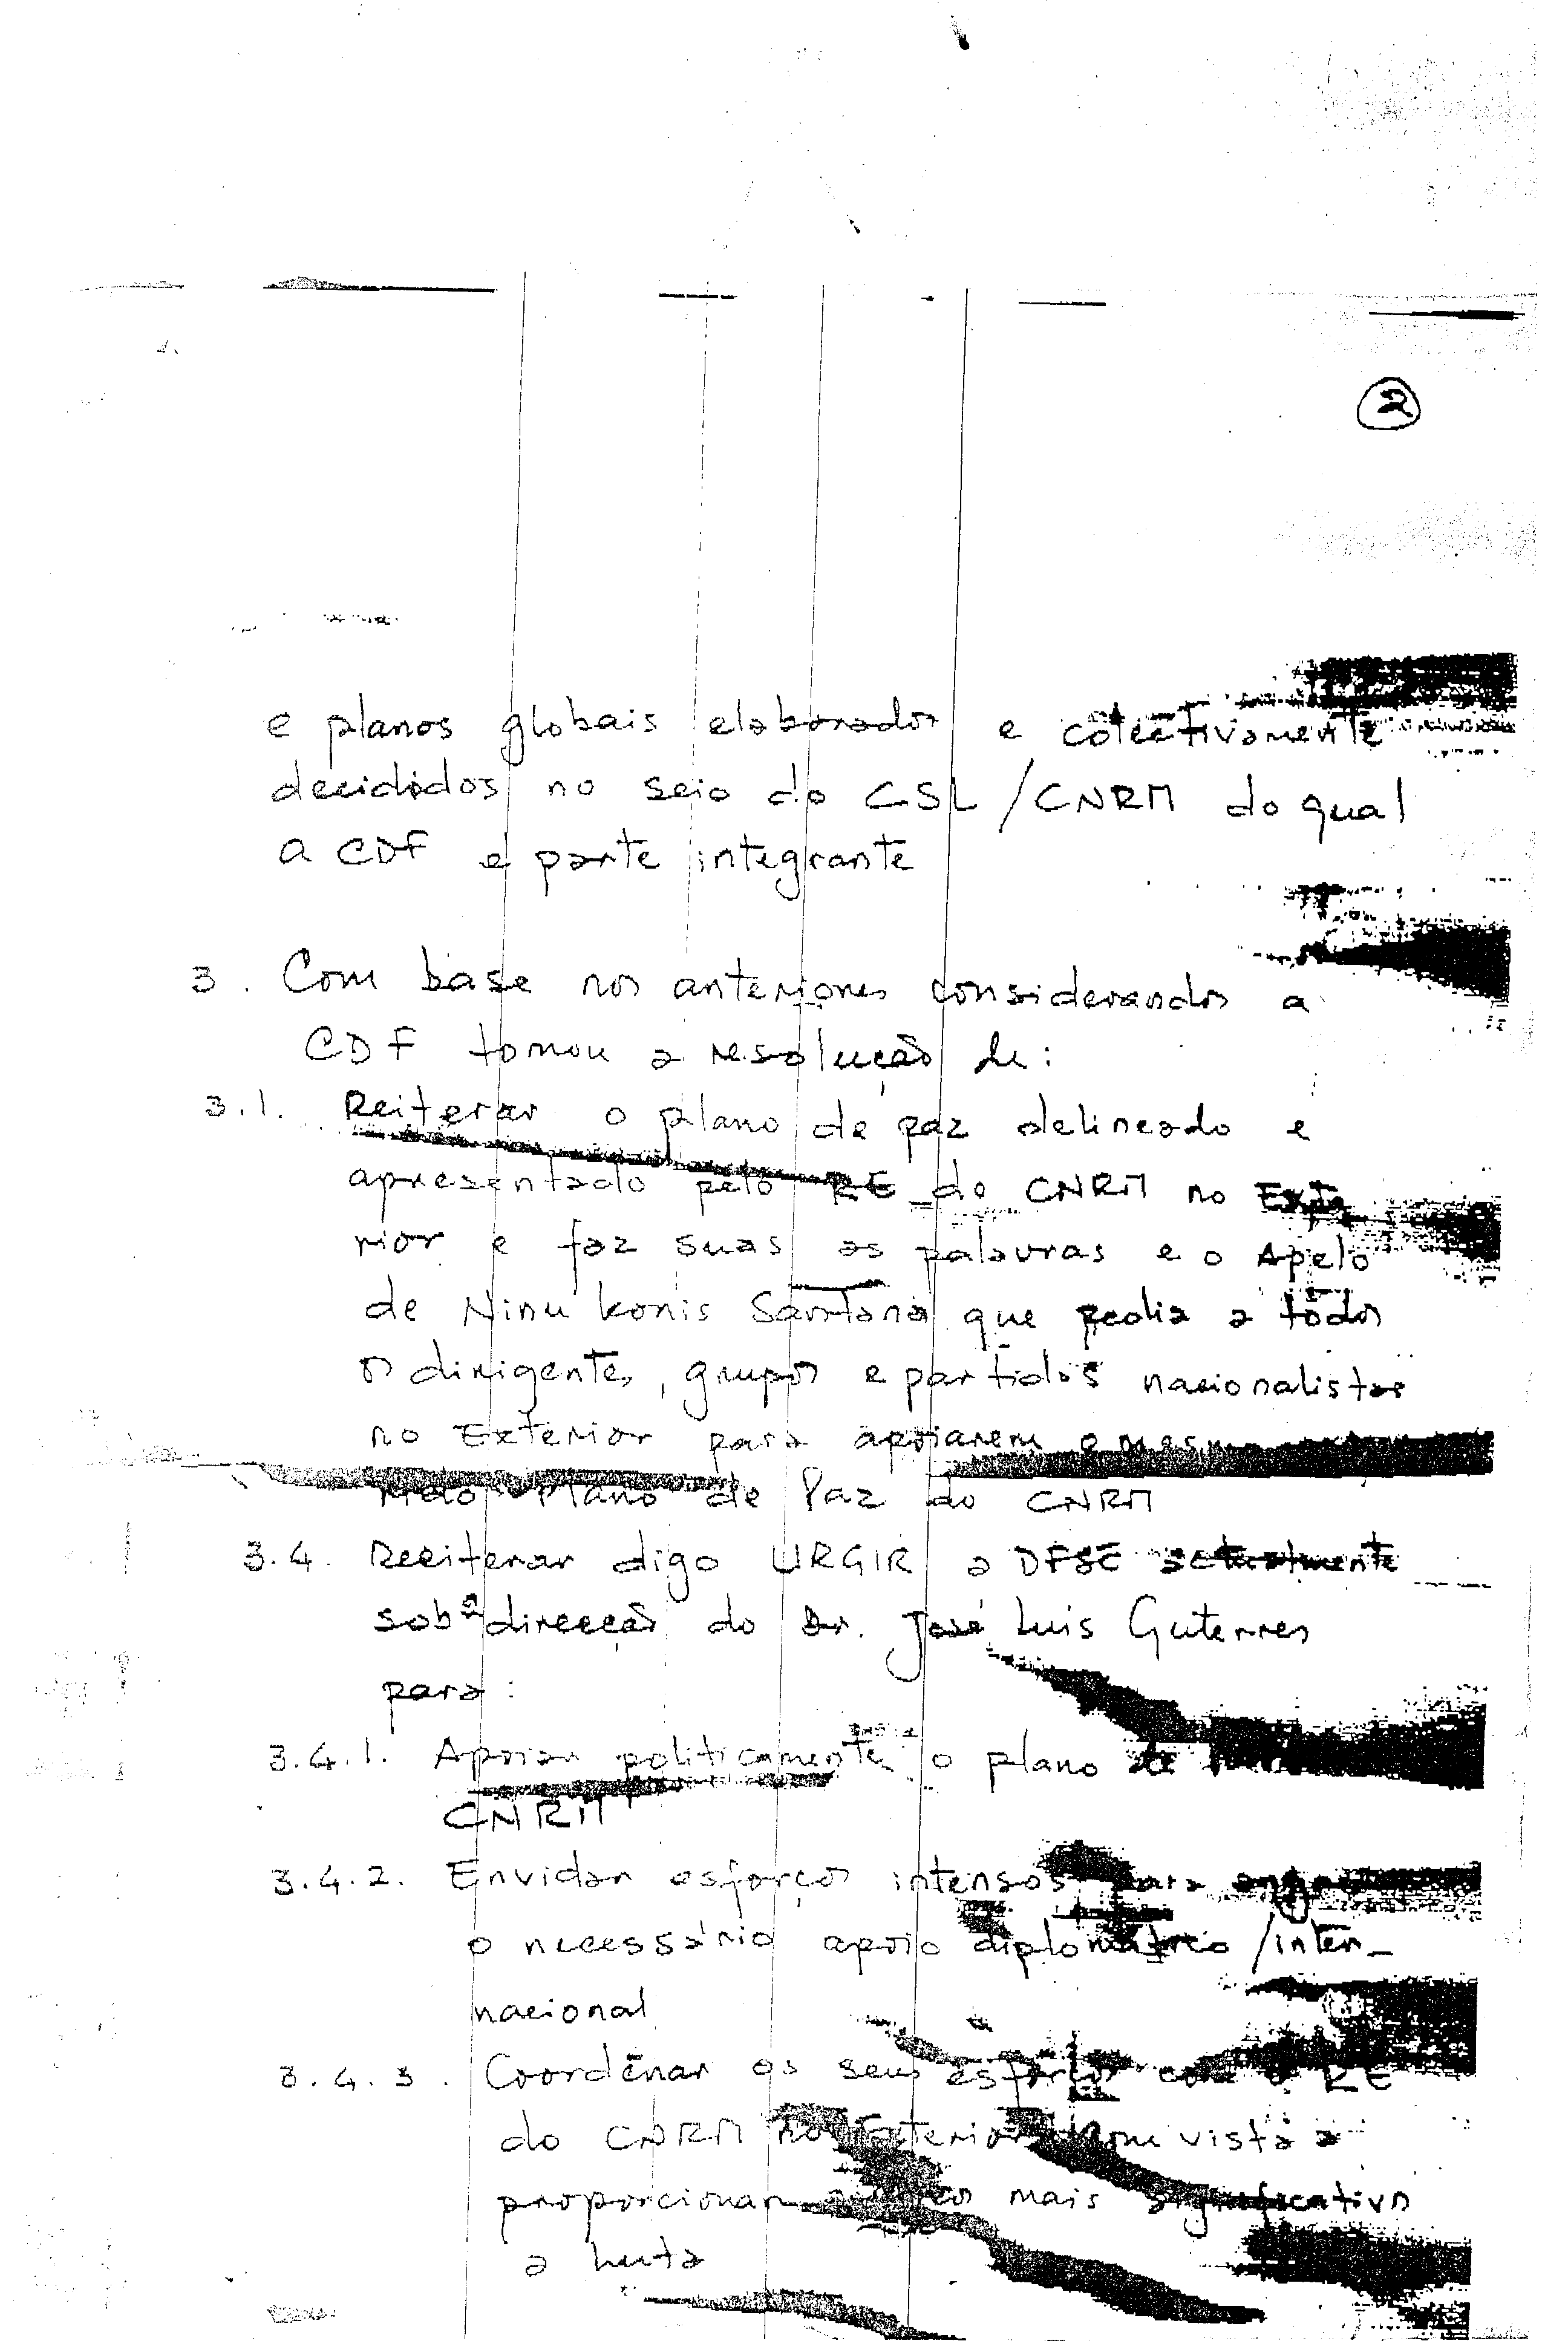 2
e planos globais elaborados e colectivamente
decididos no seio do CSL/CNRM do qual
a CDF é parte integrante
3. Com base nos anteriores considerandos a
CDF tomou a resolução de:
3.1. Reiterar o plano de paz delineado e
apresentado pelo RE do CNRM no Exte
rior e faz suas as palavras e o Apelo
de Ninu Konis Santana que pedia a todos
os dirigentes, grupos e partidos nacionalistas
no Exterior para apoiarem o mesmo
Plano de Paz do CNRM
3.4. Reeiterar digo URGIR a DFSE actualmente
sob a direcção do Dr. José Luis Guterres
para:
3.4.1. Apoiar politicamente o plano de
CNRM
3.4.2. Envidar esforços intensos para
o necessário apoio diplomático/inter-
nacional
3.4.3. Coordenar os seus esforços com o RE
do CNRM no Exterior com vista a
proporcionar mais significativos
a luta